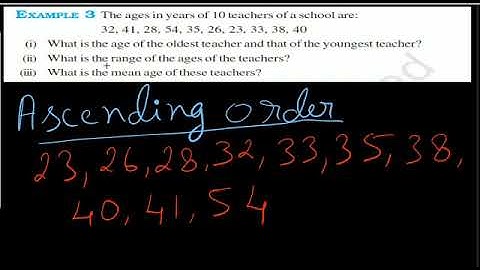 EXAMPLE 3 The ages in years of 10 teachers of a school are:
32, 41, 28, 54, 35, 26, 23, 33, 38, 40
(i) What is the age of the oldest teacher and that of the youngest teacher?
(ii) What is the range of the ages of the teachers?
(iii) What is the mean age of these teachers?
Ascending order
23, 26, 28, 32, 33, 35, 38,
40, 41, 54